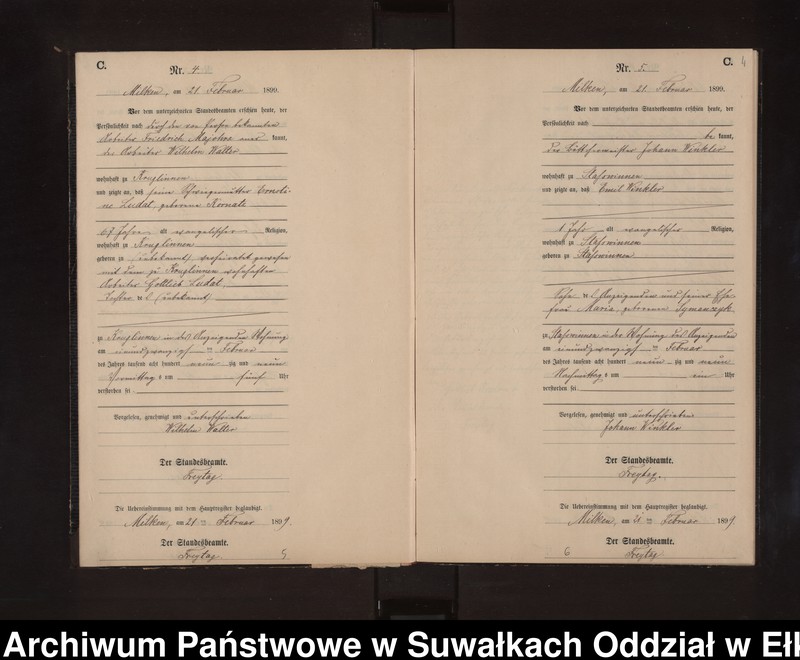 C.
Nr. 4.
Milken, am 21. Februar 1899.
Vor dem unterzeichneten Standesbeamten erschien heute, der
Persönlichkeit nach durch den von Person bekannten
Arbeiter Friedrich kannt,
der Arbeiter Wilhelm Walter
wohnhaft zu Kruglinnen
und zeigte an, daß seine Schwiegermutter
Ludat, geborene
67 Jahre alt evangelischer Religion,
wohnhaft zu Kruglinnen
geboren zu (unbekannt) verheiratet gewesen
mit dem zu Kruglinnen wohnhaften
Arbeiter Gottlieb Ludat,
Tochter de (unbekannt)
zu Kruglinnen in des Anzeigenden Wohnung
am einundzwanzigsten Februar
des Jahres tausend acht hundert neun zig und neun
Vormittags um fünf Uhr
verstorben sei.
Vorgelesen, genehmigt und unterschrieben
Wilhelm Walter
Der Standesbeamte.
Freytag.
Die Uebereinstimmung mit dem Hauptregister beglaubigt.
Milken, am 21ten Februar 1899
Der Standesbeamte.
Freytag.
5
C.
4
Nr. 5.
Milken, am 21. Februar 1899.
Vor dem unterzeichneten Standesbeamten erschien heute, der
Persönlichkeit nach
be kannt,
der Johann Winkler
wohnhaft zu Staßwinnen
und zeigte an, daß Emil Winkler
1 Jahr alt evangelischer Religion,
wohnhaft zu Staßwinnen
geboren zu Staßwinnen
Sohn des Anzeigenden und seiner Ehe-
frau Maria, geborenen Symanzyk
zu Staßwinnen in der Wohnung des Anzeigenden
am einundzwanzigsten Februar
des Jahres tausend acht hundert neun zig und neun
Nachmittags um ein Uhr
verstorben sei.
Vorgelesen, genehmigt und unterschrieben
Johann Winkler
Der Standesbeamte.
Freytag.
Die Uebereinstimmung mit dem Hauptregister beglaubigt.
Milken, am 21ten Februar 1899
Der Standesbeamte.
Freytag
6
Archiwum Państwowe w Suwałkach Oddział w Ełk